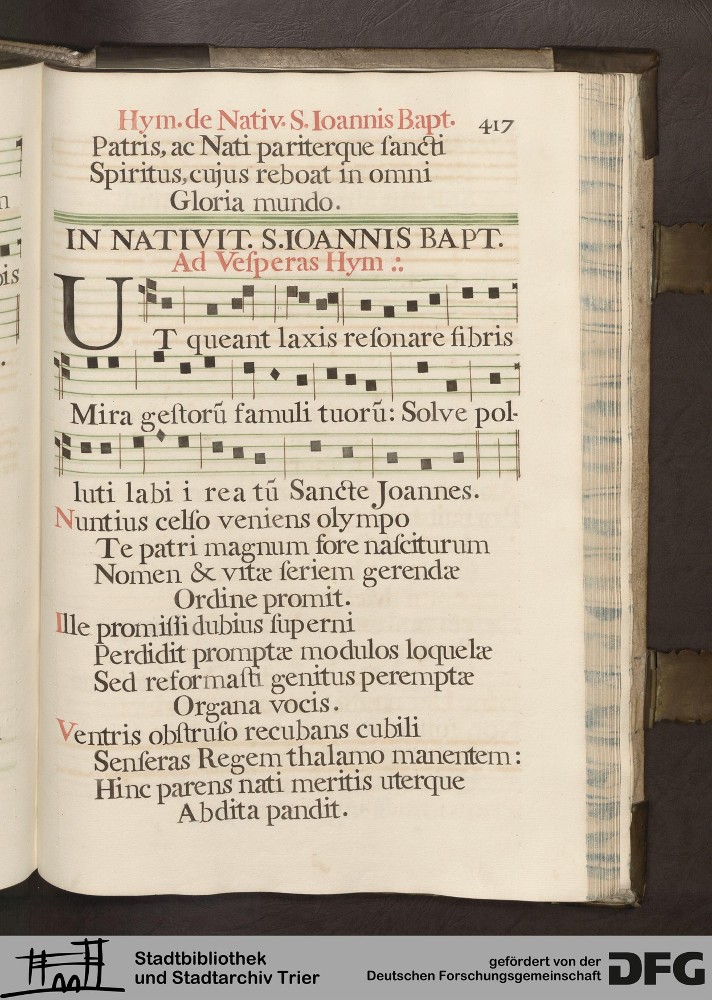 Hym. de Nativ. S. Ioannis Bapt. 417
Patris, ac Nati pariterque ſancti
Spiritus, cujus reboat in omni
Gloria mundo.
IN NATIVIT. S. IOANNIS BAPT.
Ad Veſperas Hym .:
UT queant laxis reſonare fibris
Mira geſtorū famuli tuorū: Solve pol-
luti labi i rea tū Sancte Joannes.
Nuntius celſo veniens olympo
Te patri magnum fore naſciturum
Nomen & vitæ ſeriem gerendæ
Ordine promit.
Ille promiſſi dubius ſuperni
Perdidit promptæ modulos loquelæ
Sed reformaſti genitus peremptæ
Organa vocis.
Ventris obſtruſo recubans cubili
Senſeras Regem thalamo manentem:
Hinc parens nati meritis uterque
Abdita pandit.
Stadtbibliothek
und Stadtarchiv Trier
gefördert von der
Deutschen Forschungsgemeinschaft
DFG